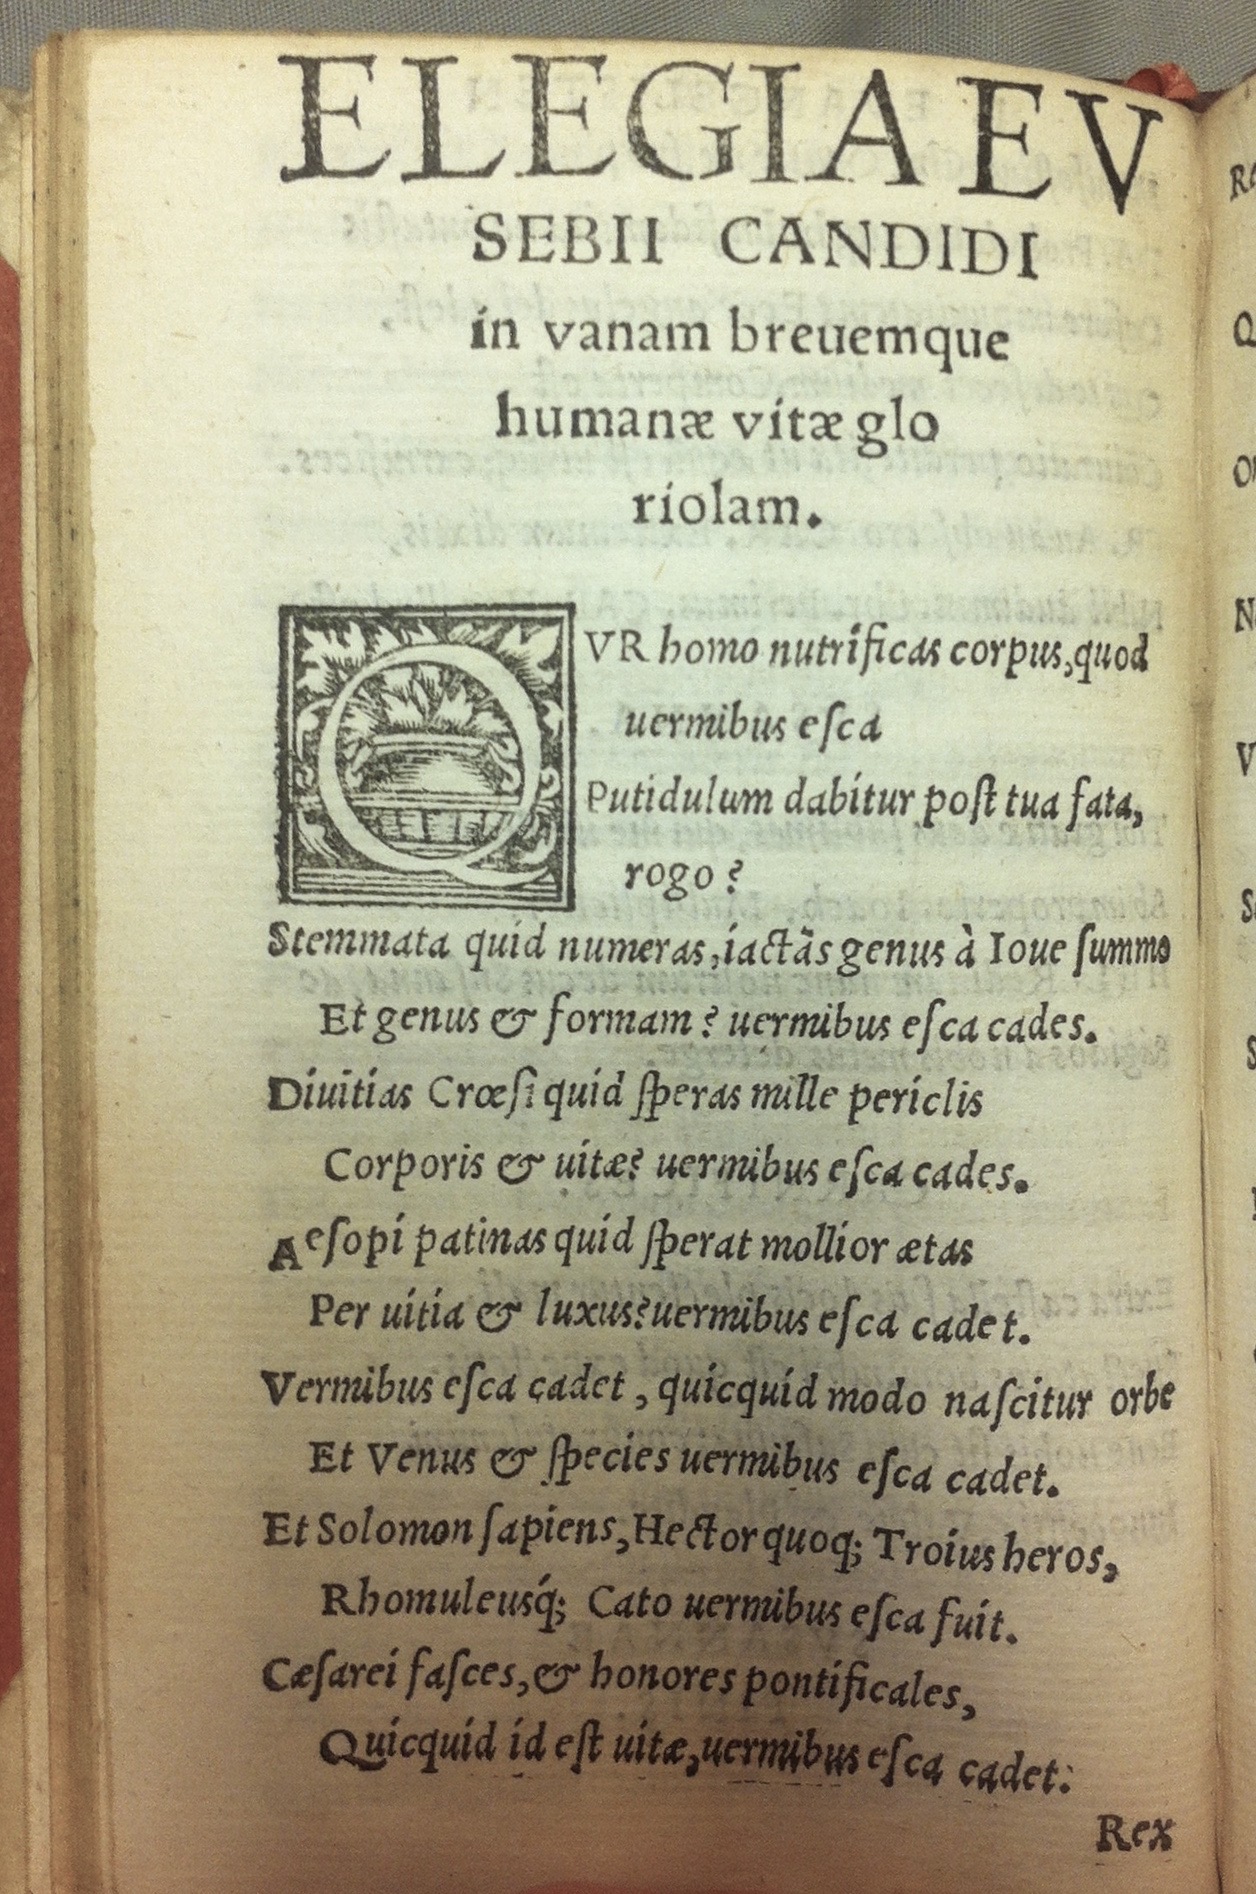 ELEGIA EV
SEBII CANDIDI
in vanam breuemque
humanæ vitæ glo
riolam.
QVR homo nutrificas corpus, quod
uermibus eſca
Putidulum dabitur poſt tua fata,
rogo?
Stemmata quid numeras, iactãs genus à Ioue ſummo
Et genus & formam? uermibus eſca cades.
Diuitias Crœſi quid ſperas mille periclis
Corporis & uitæ? uermibus eſca cades.
Aeſopi patinas quid ſperat mollior ætas
Per uitia & luxus? uermibus eſca cadet.
Vermibus eſca cadet, quicquid modo naſcitur orbe
Et Venus & ſpecies uermibus eſca cadet.
Et Solomon ſapiens, Hector quoq; Troius heros,
Rhomuleusq́; Cato uermibus eſca fuit.
Cæſarei faſces, & honores pontificales,
Quicquid id eſt uitæ, uermibus eſca cadet.
Rex